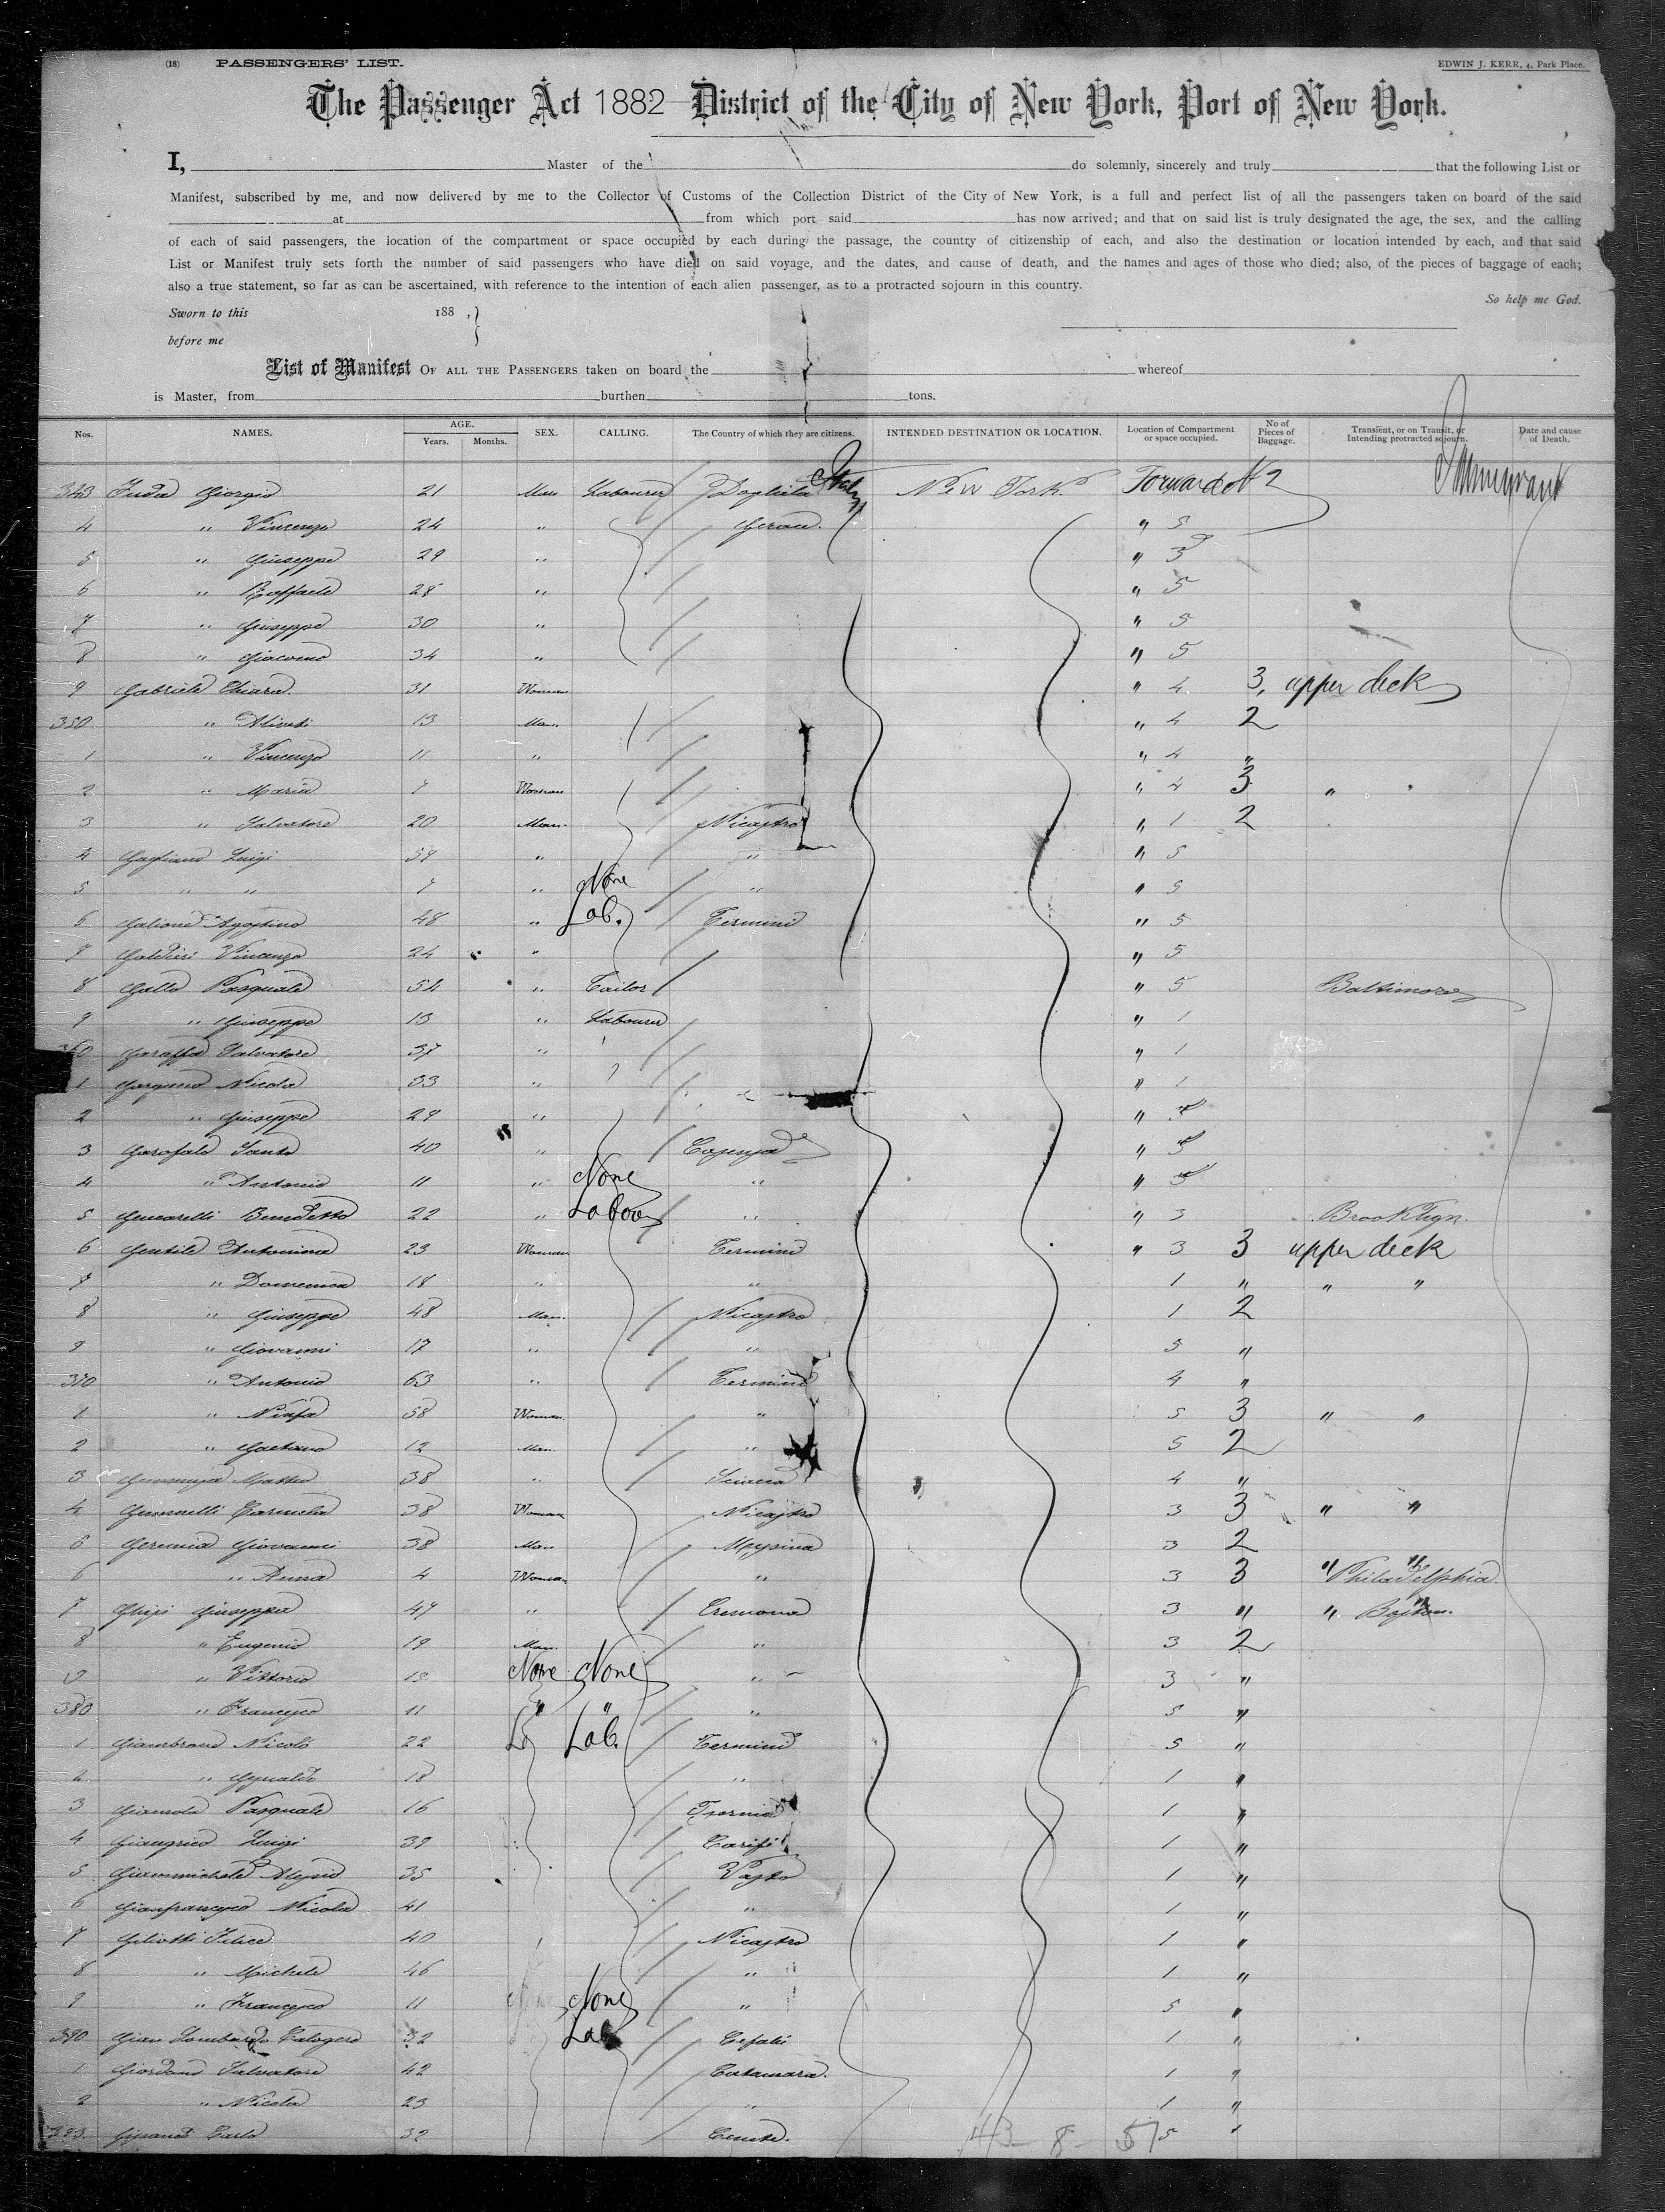 (18) PASSENGERS' LIST.
EDWIN J. KERR, 4, Park Place.
The Passenger Act 1882 District of the City of New York, Port of New York.
I, Master of the do solemnly, sincerely and truly that the following List or
Manifest, subscribed by me, and now delivered by me to the Collector of Customs of the Collection District of the City of New York, is a full and perfect list of all the passengers taken on board of the said
at from which port said has now arrived; and that on said list is truly designated the age, the sex, and the calling
of each of said passengers, the location of the compartment or space occupied by each during the passage, the country of citizenship of each, and also the destination or location intended by each, and that said
List or Manifest truly sets forth the number of said passengers who have died on said voyage, and the dates, and cause of death, and the names and ages of those who died; also, of the pieces of baggage of each;
also a true statement, so far as can be ascertained, with reference to the intention of each alien passenger, as to a protracted sojourn in this country.
So help me God.
Sworn to this 188 ,
before me
List of Manifest OF ALL THE PASSENGERS taken on board the whereof
is Master, from burthen tons.
Nos. NAMES. AGE. Years. Months. SEX. CALLING. The Country of which they are citizens. INTENDED DESTINATION OR LOCATION. Location of Compartment or space occupied. No of Pieces of Baggage. Transient, or on Transit, or Intending protracted sojourn. Date and cause of Death.
343 Juda Giorgio 21 Man Labourer Italy New York Forward No 2 Immigrant
4 " Vincenzo 24 " " 5
5 " Giuseppe 29 " " 5
6 " Raffaele 28 " " 5
7 " Giuseppe 30 " " 5
8 " Giacomo 34 " " 5
9 Gabriele Chiara 31 Woman " 4 3, upper deck
350 " 13 Man. " 4 2
1 " Vincenzo 11 " " 4 "
2 " Maria 7 Woman " 4 3 "
3 " Salvatore 20 Man. Nicastro " 1 2
4 Gagliano Luigi 59 " " " 5
5 " " 7 " None " " 5
6 Galione Agostino 48 " Lab. Termini " 5
7 Galdieri Vincenzo 24 " " 5
8 Gallo Pasquale 54 " Tailor " 5 Baltimore
9 " Giuseppe 13 " Labourer " 1
360 Garaffa Salvatore 37 " " 1
1 Gargano Nicola 33 " " 1
2 " Giuseppe 29 " "
3 Garofalo Santo 40 " Cosenza " 5
4 " Antonio 11 " None " " 5
5 Gencarelli Benedetto 22 " Labour " " 3 Brooklyn.
6 Gentile Antonina 23 Woman Termini " 3 3 upper deck
7 " Domenica 18 " " 1 " " "
8 " Giuseppe 48 Man. Nicastro 1 2
9 " Giovanni 17 " " 5 "
370 " Antonio 63 " Termini 4 "
1 " Ninfa 58 Woman. " 5 3 " "
2 " Gaetano 12 Man. " 5 2
3 Matteo 38 " Sciacca 4 "
4 Carmela 38 Woman Nicastro 3 3 " "
5 Geremia Giovanni 38 Man Messina 3 2
6 " Anna 4 Woman " 3 3 " " Philadelphia.
7 Ghisi Giuseppa 47 " Cremona 3 " " " Boston.
8 " Eugenio 19 Man. " 3 2
9 " Vittorio 15 None None " 3 "
380 " Francesco 11 " " " 5 "
1 Giambrone Nicolò 22 La Lab. Termini 5 "
2 " 18 " 1 "
3 Pasquale 16 Isernia 1 "
4 Giangrieo Luigi 39 Carife 1 "
5 Giammichele 35 Vasto 1 "
6 Gianfrancesco Nicola 41 " 1 "
7 Giliotti Felice 40 Nicastro 1 "
8 " Michele 46 " 1 "
9 " Francesco 11 None " 5 "
390 Gian Lombardo Calogero 32 Lab Cefalù 1 "
1 Giordano Salvatore 42 1 "
2 " Nicola 23 " 1 "
393. Carlo 32 5 "
43 - 8 - 51